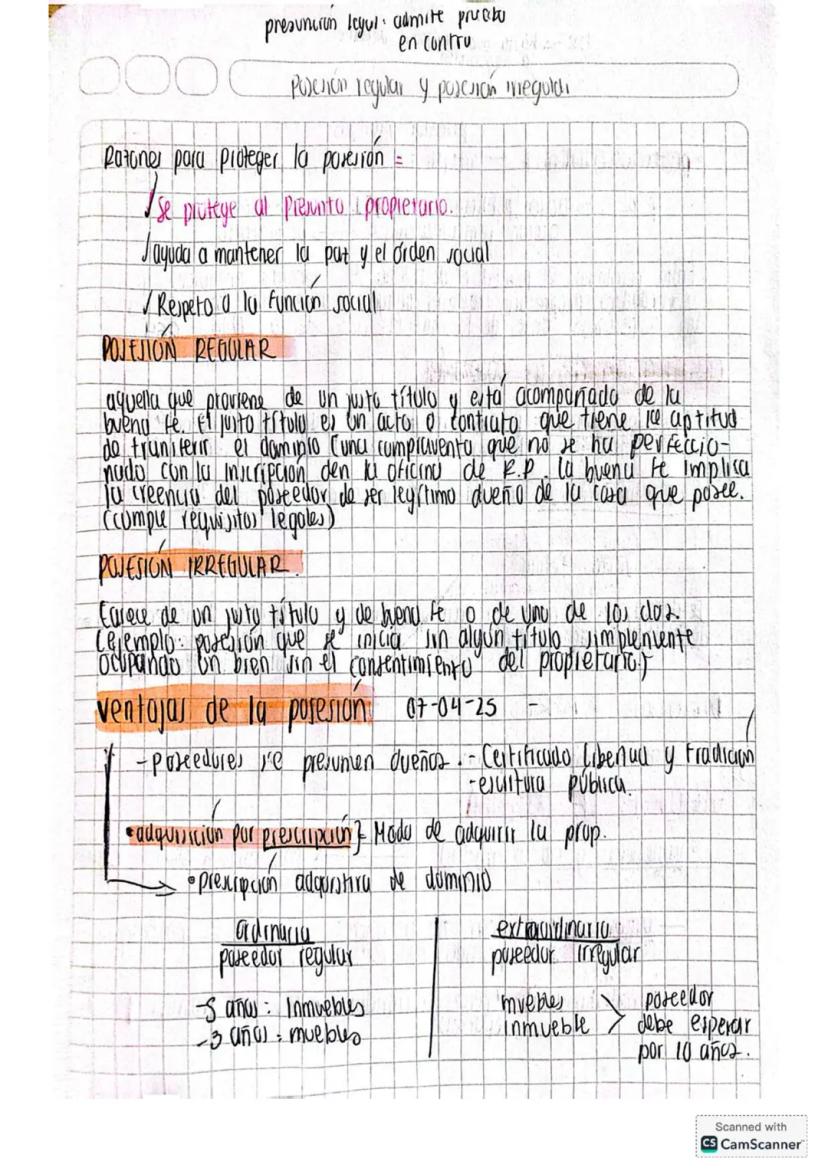 presunción legal: admite prueba
en contra
Posesión regular y posesión irregular
Razones para proteger la posesión =
✓ Se protege al presunto propietario.
✓ ayuda a mantener la paz y el órden social
✓ Respeto a la función social
POSESIÓN REGULAR
aquella que proviene de un justo título y está acompañado de la
buena fe. El justo título es un acto o contrato que tiene la aptitud
de transferir el dominio (una compraventa que no se ha perfeccio-
nado con la inscripción den la oficina de R.P. la buena fe implica
la creencia del poseedor de ser legítimo dueño de la cosa que posee.
(cumple requisitos legales)
POSESIÓN IRREGULAR.
Carece de un justo título y de buena fe o de uno de los dos.
(ejemplo: posesión que se inicia sin algún título simplemente
ocupando un bien sin el consentimiento del propietario.)
ventajas de la posesión 07-04-25 -
- poseedores se presumen dueños. - Certificado libertad y tradición
- escritura pública.
• adquisición por prescripción } Modo de adquirir la prop.
• prescripción adquisitiva de dominio
ordinaria
poseedor regular
- 5 años: Inmuebles
- 3 años: muebles
extraordinaria
poseedor irregular
muebles
inmueble > poseedor
debe esperar
por 10 años.
Scanned with
CS CamScanner